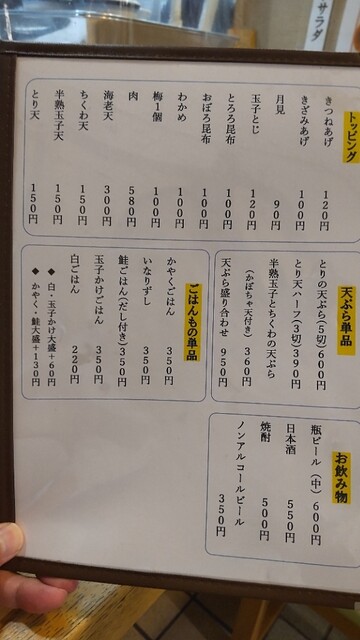 サラダ
トッピング
きつねあげ 120円
きざみあげ 100円
月見 90円
玉子とじ 120円
とろろ昆布 100円
おぼろ昆布 100円
わかめ 100円
梅1個 100円
肉 580円
海老天 300円
ちくわ天 150円
半熟玉子天 150円
とり天 150円
天ぷら単品
とりの天ぷら(5切)600円
とり天ハーフ(3切)390円
半熟玉子とちくわの天ぷら
(かぼちゃ天付き) 360円
天ぷら盛り合わせ 950円
ごはんもの単品
かやくごはん 350円
いなりずし 350円
鮭ごはん(だし付き)350円
玉子かけごはん 350円
白ごはん 220円
◆ 白・玉子かけ大盛+60円
◆ かやく・鮭大盛+130円
お飲み物
瓶ビール(中)600円
日本酒 550円
焼酎 500円
ノンアルコールビール
350円